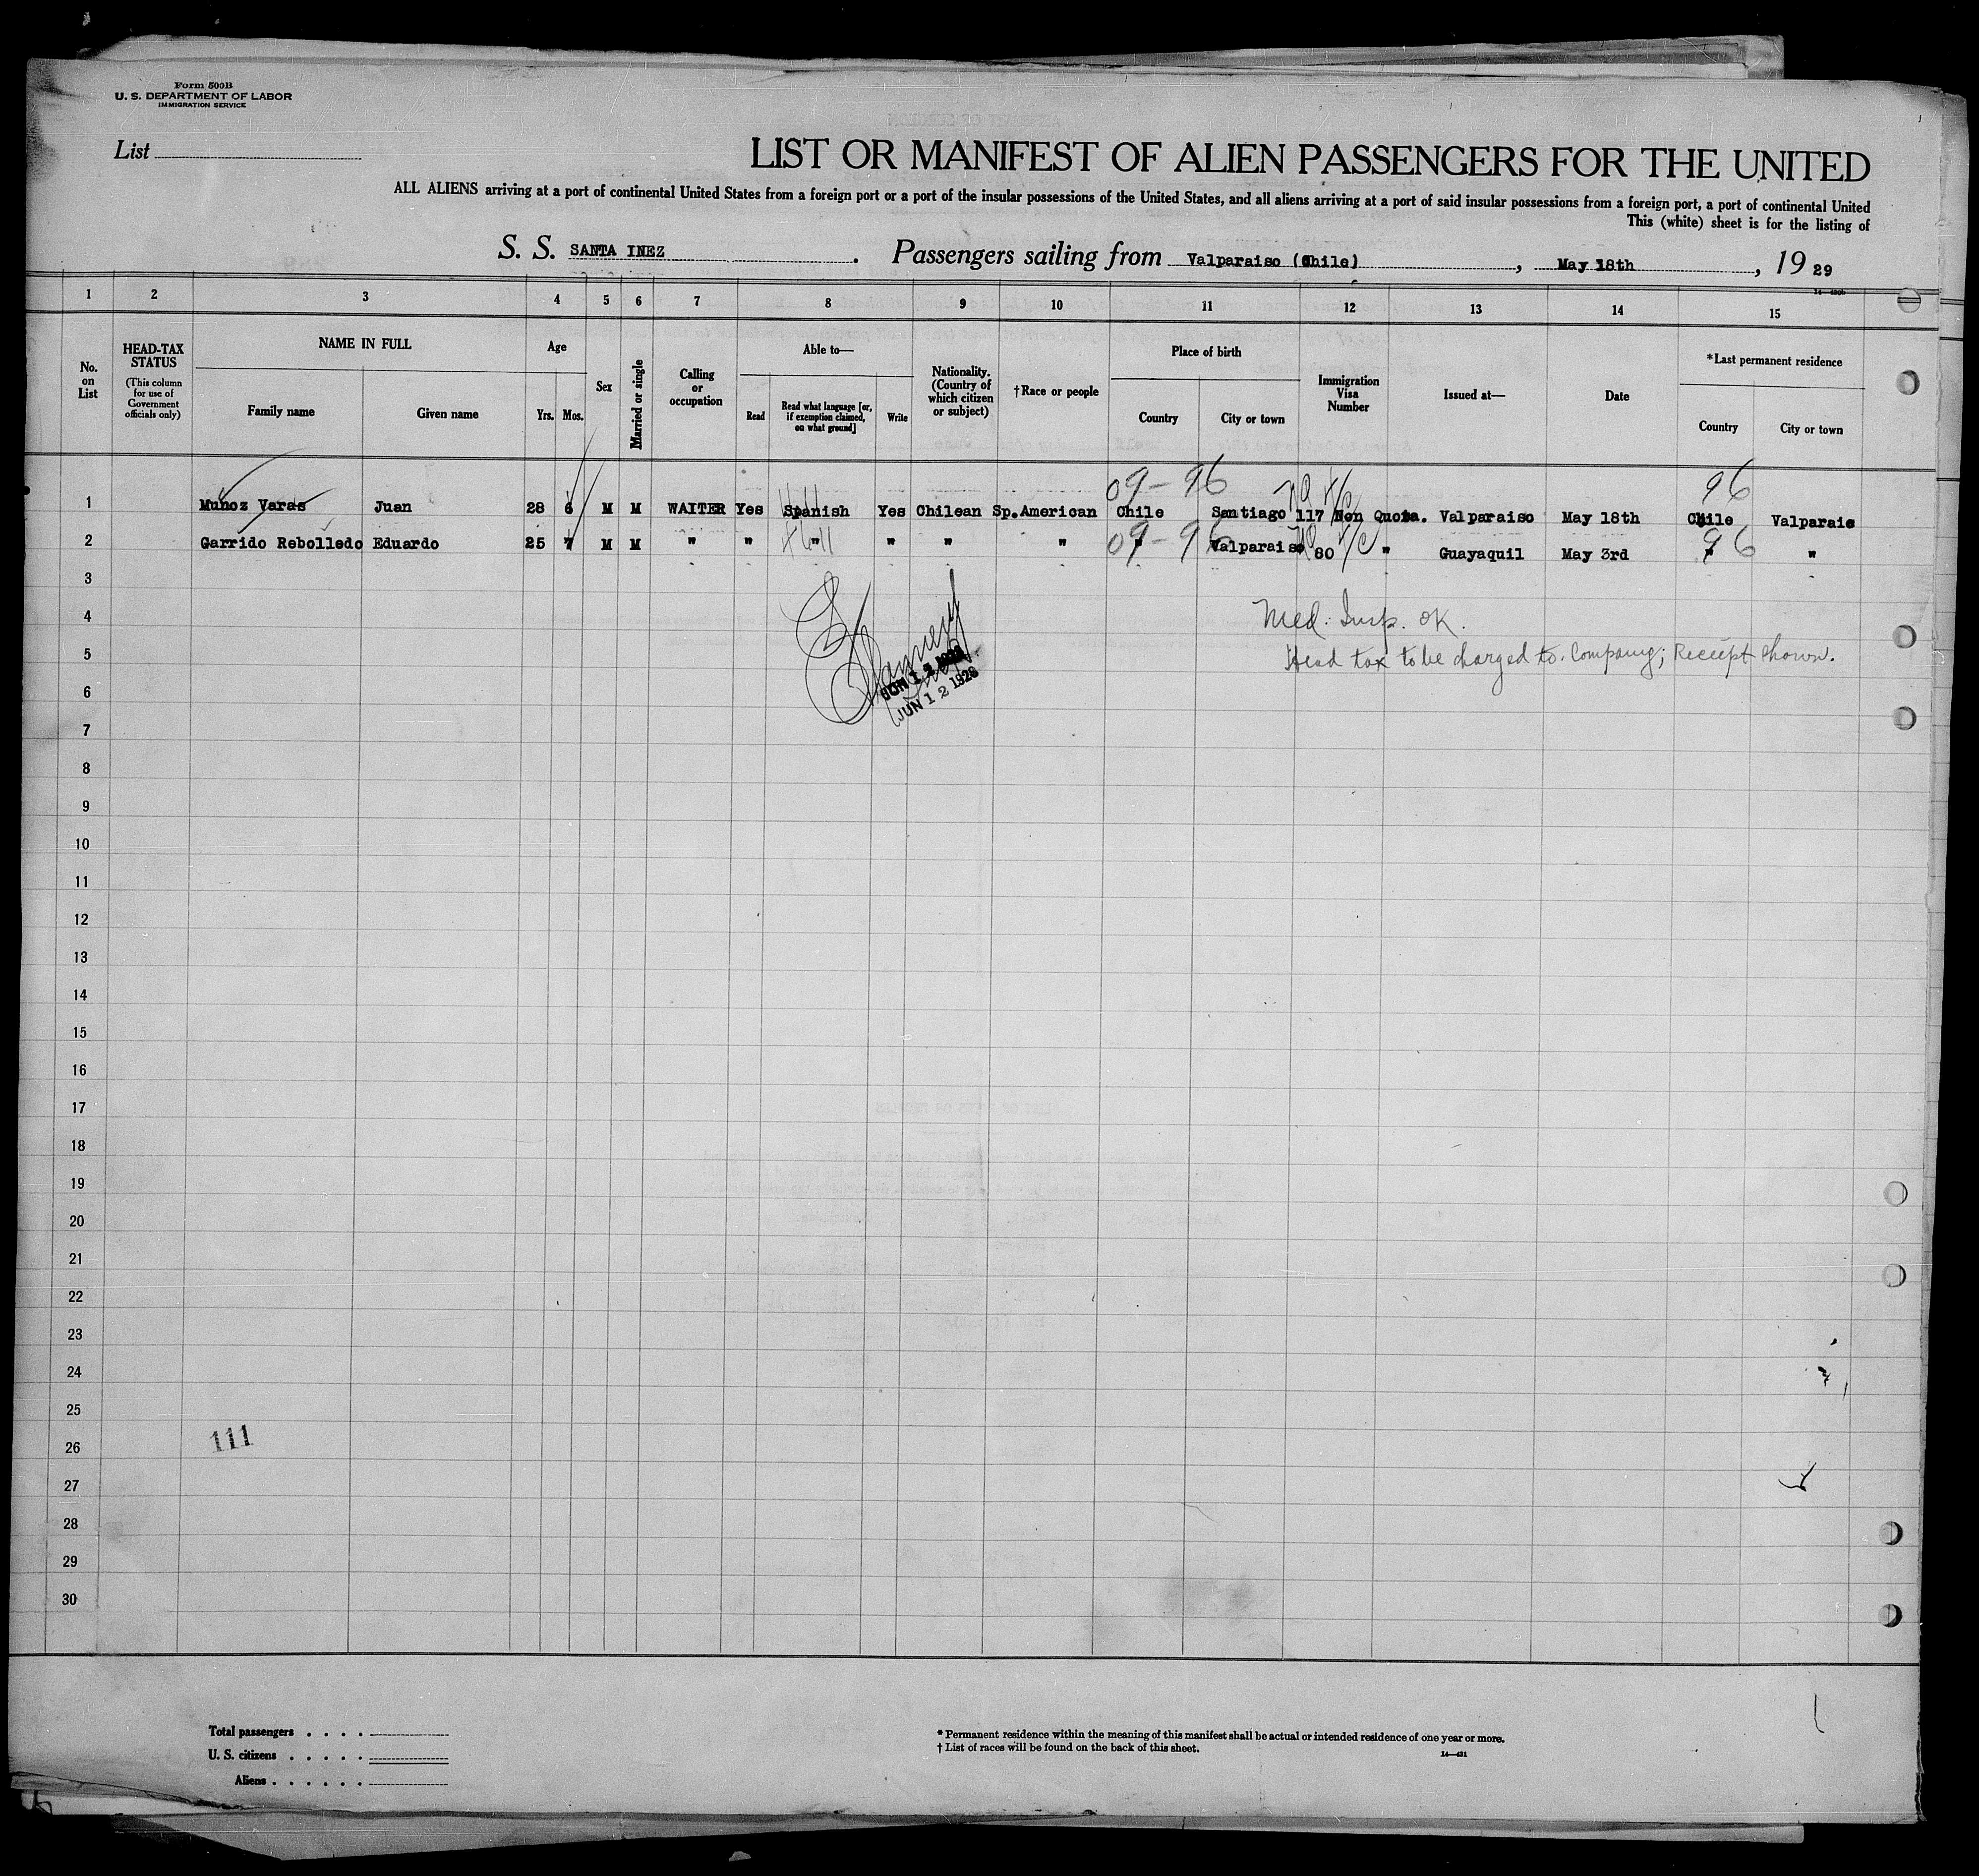 Form 500B
U. S. DEPARTMENT OF LABOR
IMMIGRATION SERVICE
List
LIST OR MANIFEST OF ALIEN PASSENGERS FOR THE UNITED
ALL ALIENS arriving at a port of continental United States from a foreign port or a port of the insular possessions of the United States, and all aliens arriving at a port of said insular possessions from a foreign port, a port of continental United
This (white) sheet is for the listing of
S. S. SANTA INEZ. Passengers sailing from Valparaiso (Chile), May 18th, 19 29
1 2 3 4 5 6 7 8 9 10 11 12 13 14 15
No. on List
HEAD-TAX STATUS
(This column for use of Government officials only)
NAME IN FULL
Family name Given name
Age
Yrs. Mos.
Sex
Married or single
Calling or occupation
Able to—
Read Read what language [or, if exemption claimed, on what ground] Write
Nationality. (Country of which citizen or subject)
†Race or people
Place of birth
Country City or town
Immigration Visa Number
Issued at—
Date
*Last permanent residence
Country City or town
09-96 96
1 Muñoz Varas Juan 28 6 M M WAITER Yes Spanish Yes Chilean Sp.American Chile Santiago 117 Non Quota. Valparaiso May 18th Chile Valparais
2 Garrido Rebolledo Eduardo 25 7 M M " " " " " " " Valparaiso 80 " Guayaquil May 3rd " "
09-96 96
3
4 Med. Insp. OK.
5 Head tax to be charged to Company; Receipt shown.
JUN 12 1928
6
7
8
9
10
11
12
13
14
15
16
17
18
19
20
21
22
23
24
25
26 111
27
28
29
30
Total passengers . . . .
U. S. citizens . . . . .
Aliens . . . . . .
* Permanent residence within the meaning of this manifest shall be actual or intended residence of one year or more.
† List of races will be found on the back of this sheet.
14—431